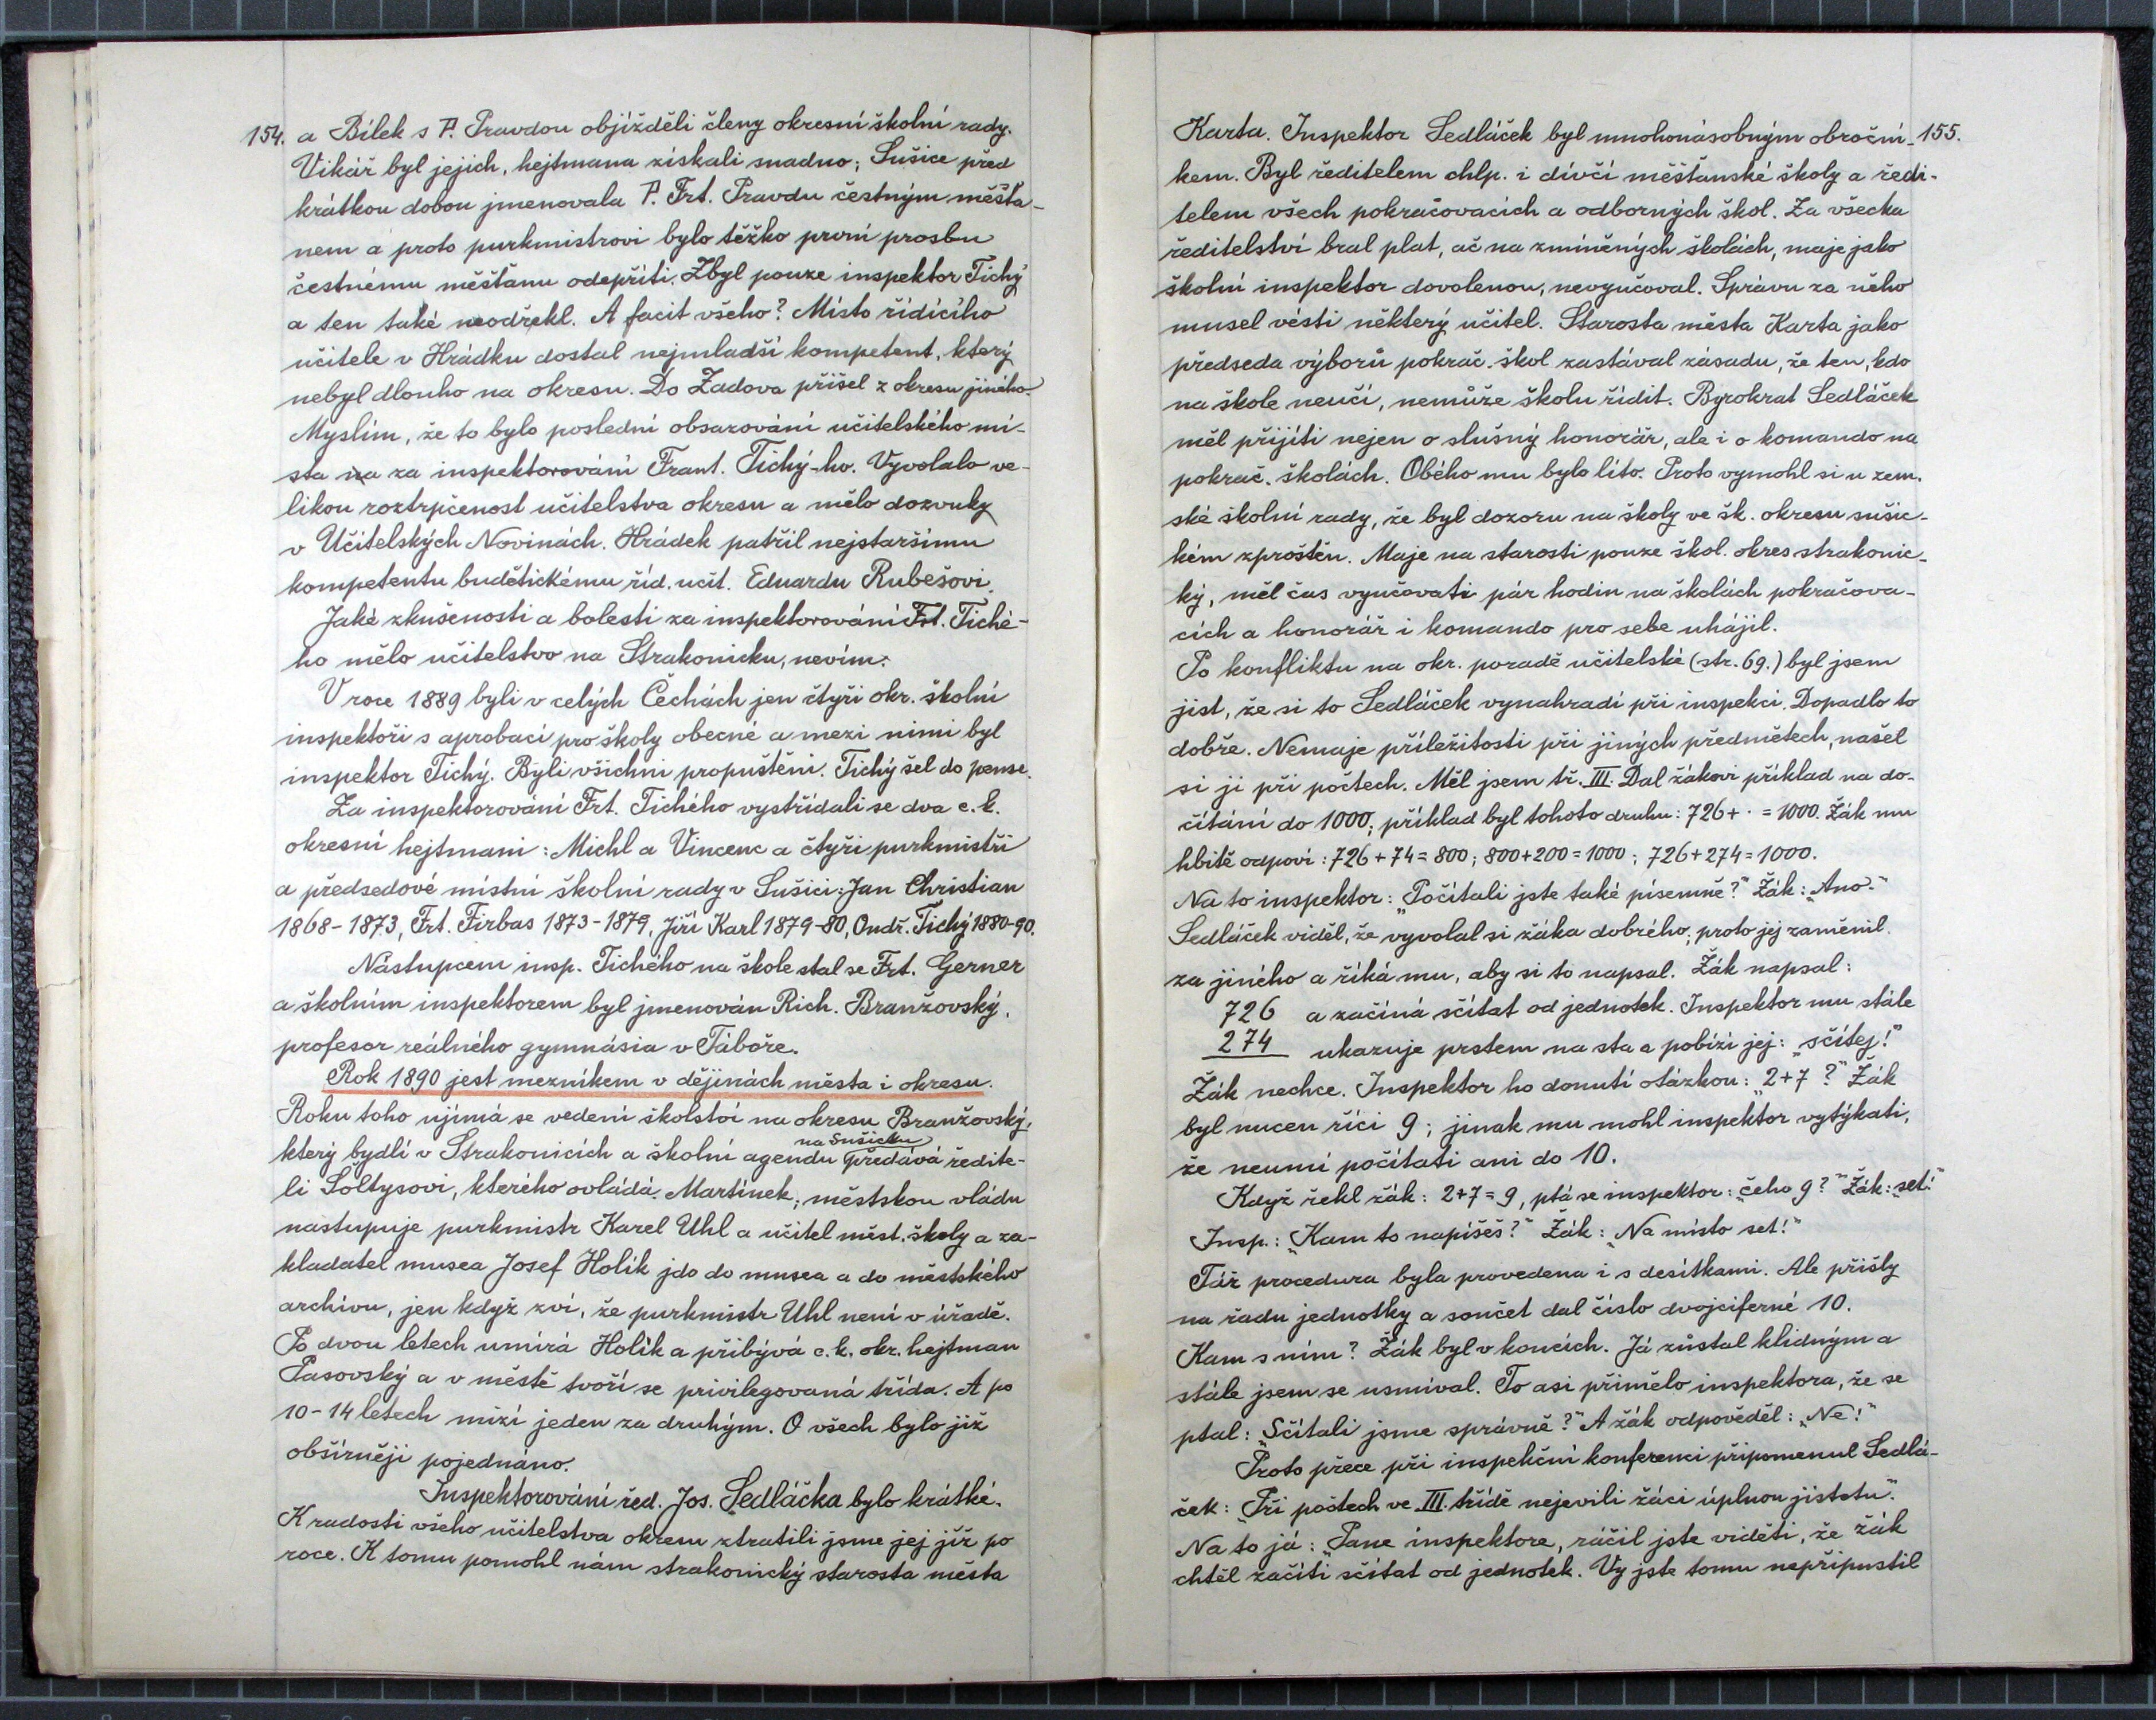 154. a Bílek s P. Pravdou objížděli členy okresní školní rady.
Vikář byl jejich, hejtmana získali snadno; Sušice před
krátkou dobou jmenovala P. Frt. Pravdu čestným měšťa-
nem a proto purkmistrovi bylo těžko první prosbu
čestnému měšťanu odepříti. Zbyl pouze inspektor Tichý
a ten také neodřekl. A facit všeho? Místo řídícího
učitele v Hrádku dostal nejmladší kompetent, který
nebyl dlouho na okresu. Do Žadova přišel z okresu jiného.
Myslím, že to bylo poslední obsazování učitelského mí-
sta na za inspektorování Frant. Tichý-ho. Vyvolalo ve-
likou roztrpčenost učitelstva okresu a mělo dozvuky
v Učitelských Novinách. Hrádek patřil nejstaršímu
kompetentu budětickému říd. učit. Eduardu Rubešovi.
Jaké zkušenosti a bolesti za inspektorování Frt. Tiché-
ho mělo učitelstvo na Strakonicku, nevím.
V roce 1889 byli v celých Čechách jen čtyři okr. školní
inspektoři s aprobací pro školy obecné a mezi nimi byl
inspektor Tichý. Byli všichni propuštěni. Tichý šel do pense.
Za inspektorování Frt. Tichého vystřídali se dva c. k.
okresní hejtmani: Michl a Vincenc a čtyři purkmistři
a předsedové místní školní rady v Sušici: Jan Christian
1868-1873, Frt. Firbas 1873-1879, Jiří Karl 1879-80, Ondř. Tichý 1880-90.
Nástupcem insp. Tichého na škole stal se Frt. Gerner
a školním inspektorem byl jmenován Rich. Branžovský,
profesor reálného gymnásia v Táboře.
Rok 1890 jest mezníkem v dějinách města i okresu.
Roku toho ujímá se vedení školství na okresu Branžovský,
na Sušicku
který bydlí v Strakonicích a školní agendu předává ředite-
li Šoltysovi, kterého ovládá Martínek; městskou vládu
nastupuje purkmistr Karel Uhl a učitel měst. školy a za-
kladatel musea Josef Holík jde do musea a do městského
archivu, jen když zví, že purkmistr Uhl není v úřadě.
Po dvou letech umírá Holík a přibývá c. k. okr. hejtman
Pasovský a v městě tvoří se privilegovaná třída. A po
10-14 letech mizí jeden za druhým. O všech bylo již
obšírněji pojednáno.
Inspektorování řed. Jos. Sedláčka bylo krátké.
K radosti všeho učitelstva okresu ztratili jsme jej již po
roce. K tomu pomohl nám strakonický starosta města
Karta. Inspektor Sedláček byl mnohonásobným obroční- 155.
kem. Byl ředitelem chlp. i dívčí měšťanské školy a ředi-
telem všech pokračovacích a odborných škol. Za všecka
ředitelství bral plat, ač na zmíněných školách, maje jako
školní inspektor dovolenou, nevyučoval. Správu za něho
musel vésti některý učitel. Starosta města Karta jako
předseda výborů pokrač. škol zastával zásadu, že ten, kdo
na škole neučí, nemůže školu řídit. Byrokrat Sedláček
měl přijíti nejen o slušný honorář, ale i o komando na
pokrač. školách. Obého mu bylo líto. Proto vymohl si u zem.
ské školní rady, že byl dozoru na školy ve šk. okresu sušic-
kém zproštěn. Maje na starosti pouze škol. okres strakonic-
ký, měl čas vyučovati pár hodin na školách pokračova-
cích a honorář i komando pro sebe uhájil.
Po konfliktu na okr. poradě učitelské (str. 69.) byl jsem
jist, že si to Sedláček vynahradí při inspekci. Dopadlo to
dobře. Nemaje příležitosti při jiných předmětech, našel
si ji při počtech. Měl jsem tř. III. Dal žákovi příklad na do-
čítání do 1000; příklad byl tohoto druhu: 726 + · = 1000. Žák mu
hbitě odpoví: 726 + 74 = 800; 800+200 = 1000; 726+274 = 1000.
Na to inspektor: „Počítali jste také písemně?" Žák: „Ano."
Sedláček viděl, že vyvolal si žáka dobrého; proto jej zaměnil
za jiného a říká mu, aby si to napsal. Žák napsal:
726 a začíná sčítat od jednotek. Inspektor mu stále
274 ukazuje prstem na sta a pobízí jej: „sčítej!"
Žák nechce. Inspektor ho donutí otázkou: „2+7?" Žák
byl nucen říci 9; jinak mu mohl inspektor vytýkati,
že neumí počítati ani do 10.
Když řekl žák: 2+7 = 9, ptá se inspektor: „čeho 9?" Žák: „set!"
Insp.: „Kam to napíšeš?" Žák: „Na místo set!"
Táž procedura byla provedena i s desítkami. Ale přišly
na řadu jednotky a součet dal číslo dvojciferné 10.
Kam s ním? Žák byl v koncích. Já zůstal klidným a
stále jsem se usmíval. To asi přimělo inspektora, že se
ptal: „Sčítali jsme správně?" A žák odpověděl: „Ne!"
Proto přece při inspekční konferenci připomenul Sedlá-
ček: „Při počtech ve III. třídě nejevili žáci úplnou jistotu".
Na to já: „Pane inspektore, ráčil jste viděti, že žák
chtěl začíti sčítat od jednotek. Vy jste tomu nepřipustil